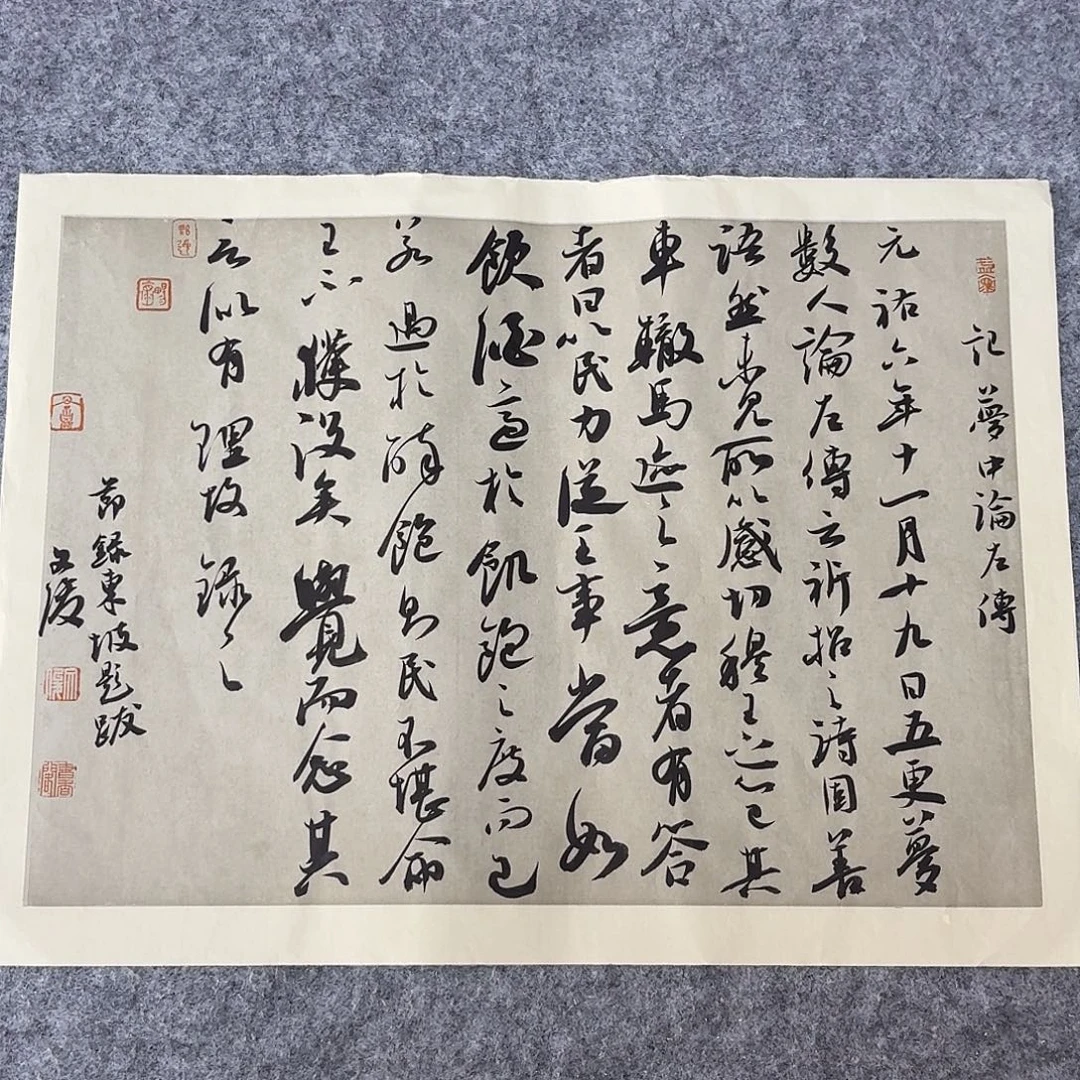 記夢中論左傳
元祐六年十一月十九日五更夢
數人論左傳云祈招之詩固善
語然未見所以感切穆王之心已其
車轍馬跡之意者有答
者曰以民力從王事當如
飲酒適於飢飽之度而已
若過於醉飽則民不堪命
王不獲沒矣覺而念其
言似有理故錄之
節錄東坡題跋